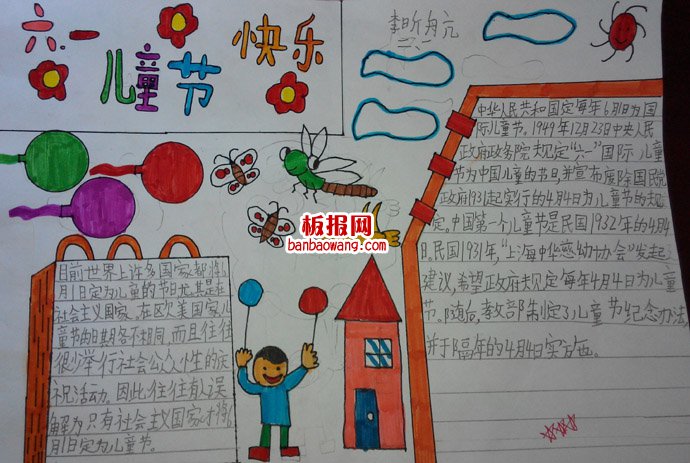 六一
儿童节
快乐
板报网
banbaowang.com
目前世界上许多国家都将6
月1日定为儿童的节日尤其是在
社会主义国家。在欧美国家儿
童节的日期各不相同,而且往往
很少举行社会公众性的庆
祝活动。因此往往有人误
解为只有社会主义国家才将6
月1日定为儿童节。
中华人民共和国定每年6月1日为国
际儿童节。1949年12月23日中央人民
政府政务院规定“六一”国际儿童
节为中国儿童的节日,并宣布废除国民党
政府1931起实行的4月4日为儿童节的规
定。中国第一个儿童节是民国1932年的4月4
日。民国1931年,“上海中华慈幼协会”发起了
建议,希望政府规定每年4月4日为儿童
节。随后,教育部制定了儿童节纪念办法,
并于隔年的4月4日实施。